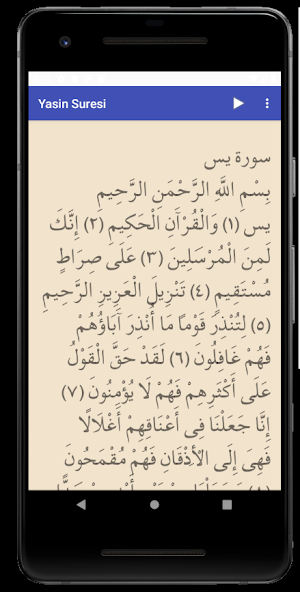 Yasin Suresi
سورة يس
بِسْمِ اللَّهِ الرَّحْمَنِ الرَّحِيمِ
يس (١) وَالْقُرْآنِ الْحَكِيمِ (٢) إِنَّكَ
لَمِنَ الْمُرْسَلِينَ (٣) عَلَى صِرَاطٍ
مُسْتَقِيمٍ (٤) تَنْزِيلَ الْعَزِيزِ الرَّحِيمِ
(٥) لِتُنْذِرَ قَوْمًا مَا أُنْذِرَ آَبَاؤُهُمْ
فَهُمْ غَافِلُونَ (٦) لَقَدْ حَقَّ الْقَوْلُ
عَلَى أَكْثَرِهِمْ فَهُمْ لَا يُؤْمِنُونَ (٧)
إِنَّا جَعَلْنَا فِي أَعْنَاقِهِمْ أَغْلَالًا
فَهِيَ إِلَى الْأَذْقَانِ فَهُمْ مُقْمَحُونَ